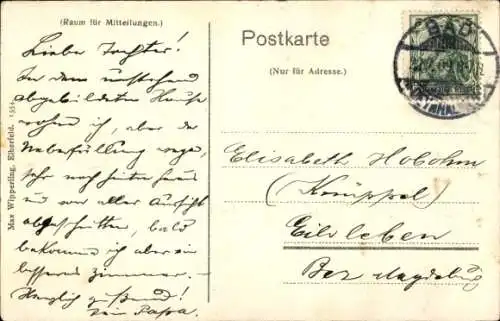 (Raum für Mitteilungen.)
Liebe Tochter!
In dem umstehend
abgebildeten Hause
wohne ich, aber der
Ueberfüllung wegen
sehr nach hinten heraus
und von aller Aussicht
abgeschnitten, bald
bekomme ich aber ein
besseres Zimmer.-
Herzlich grüßend!
Dein Papa.
Max Wipperling, Elberfeld. 1534
Postkarte
(Nur für Adresse.)
BAD
Elisabeth Hobohm
(Knüppel)
Eilsleben
Bez Magdeburg